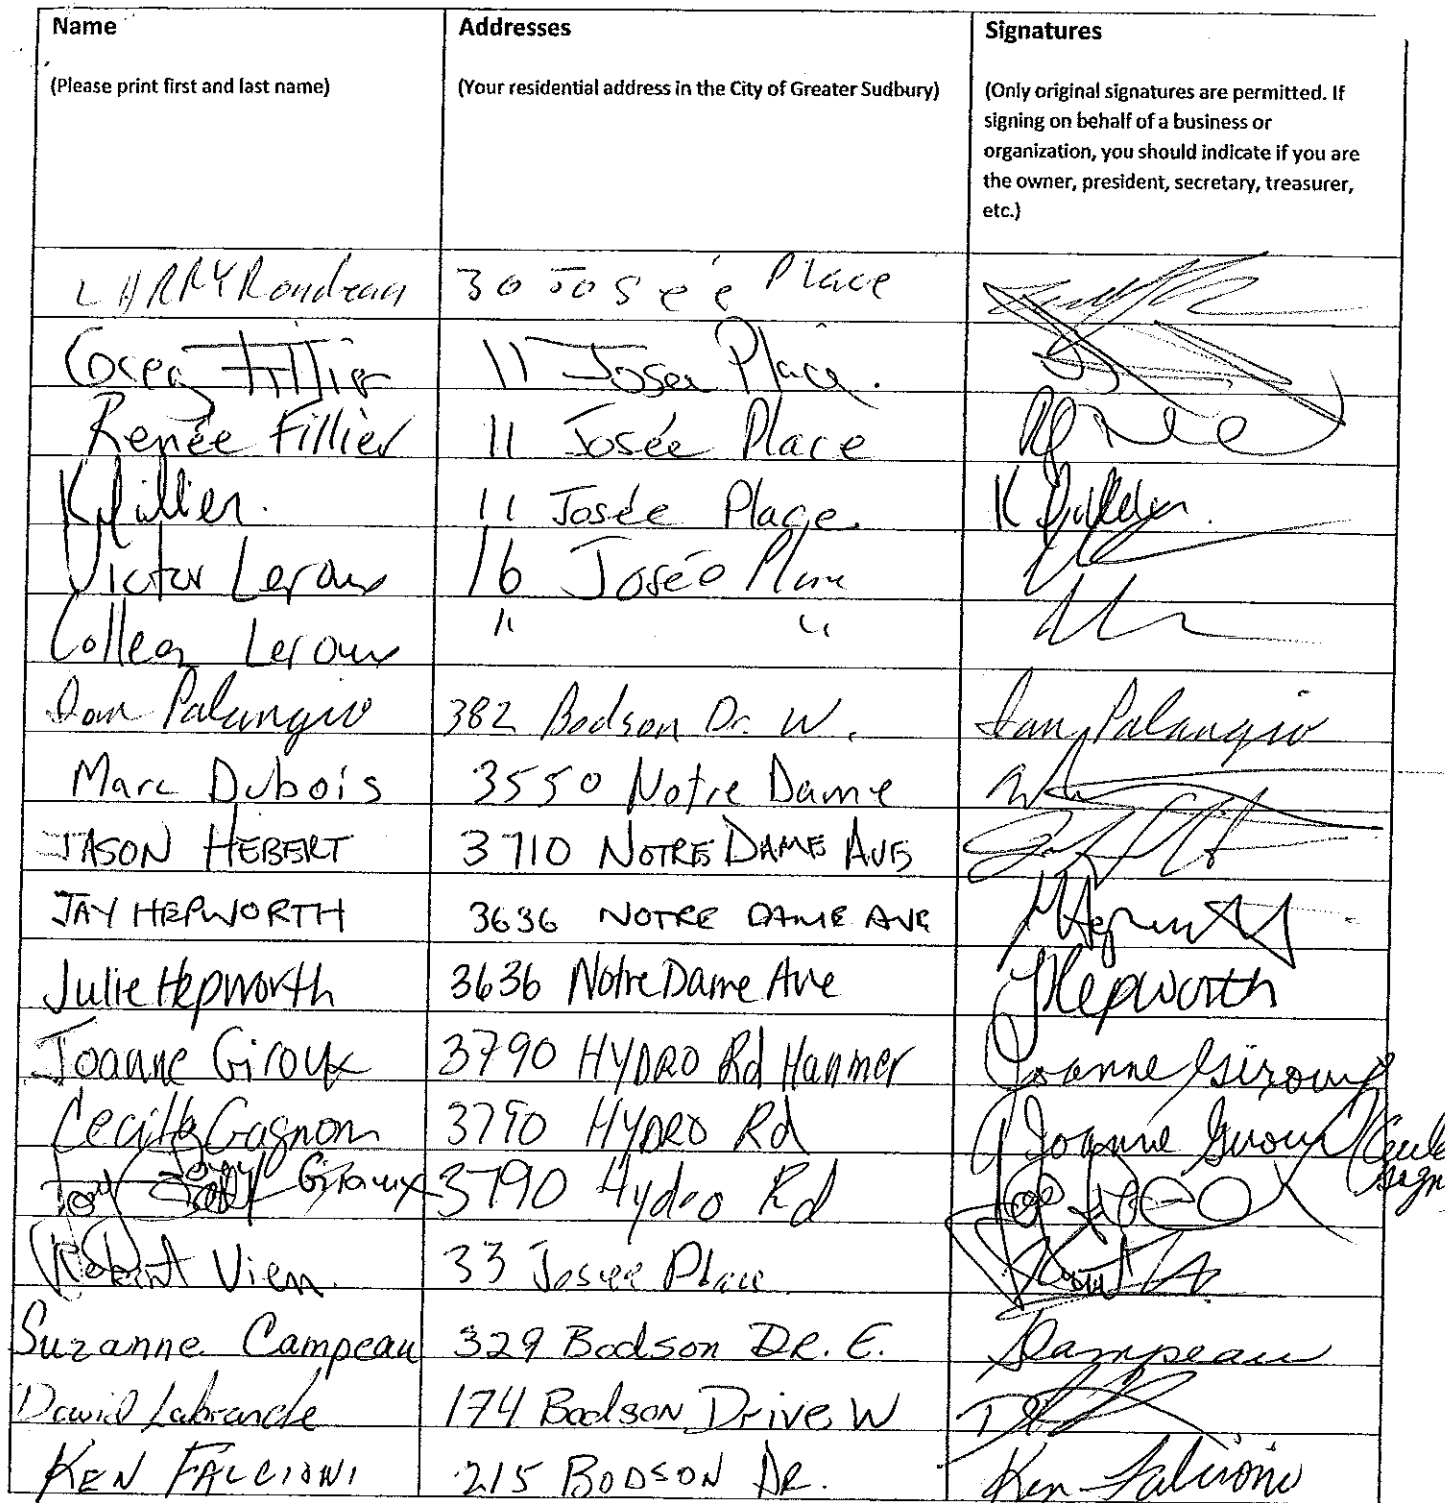 Name
(Please print first and last name)
Addresses
(Your residential address in the City of Greater Sudbury)
Signatures
(Only original signatures are permitted. If
signing on behalf of a business or
organization, you should indicate if you are
the owner, president, secretary, treasurer,
etc.)
LARRY Rondeau 30 Josée Place
Greg Fillier 11 Josee Place.
Renée Fillier 11 Josée Place
K Fillier. 11 Josée Place. K Fillier.
Victor Leroux 16 Josée Place
Colleen Leroux " "
Dan Palangio 382 Bodson Dr. W. Dan Palangio
Marc Dubois 3550 Notre Dame
JASON HEBERT 3710 NOTRE DAME AVE
JAY HEPWORTH 3636 NOTRE DAME AVE
Julie Hepworth 3636 Notre Dame Ave JHepworth
Joanne Giroux 3790 HYDRO Rd Hanmer Joanne Giroux
Gagnon 3790 HYDRO Rd Joanne Giroux
Giroux 3790 Hydro Rd
Robert Vien. 33 Josee Place
Suzanne Campeau 329 Bodson DR. E. SCampeau
David Labrande 174 Bodson Drive W
KEN FALCIONI 215 BODSON DR. Ken Falcioni